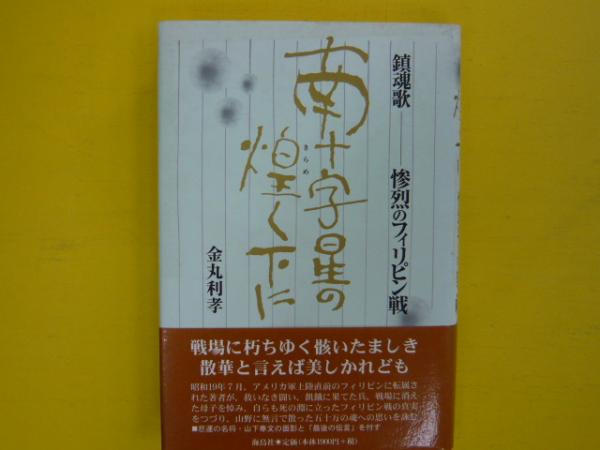 鎮魂歌──惨烈のフィリピン戦
南十字星の
きらめ
煌く下に
金丸利孝
戦場に朽ちゆく骸いたましき
散華と言えば美しかれども
昭和19年7月、アメリカ軍上陸直前のフィリピンに転属さ
れた著者が、救いなき闘い、飢餓に果てた兵、戦場に消え
た母子を悼み、自らも死の淵に立ったフィリピン戦の真実
をつづり、山野に無言で散った五十万の魂への思いを詠む
■悲運の名将・山下奉文の面影と「最後の伝言」を付す
海鳥社◆定価(本体1900円+税)